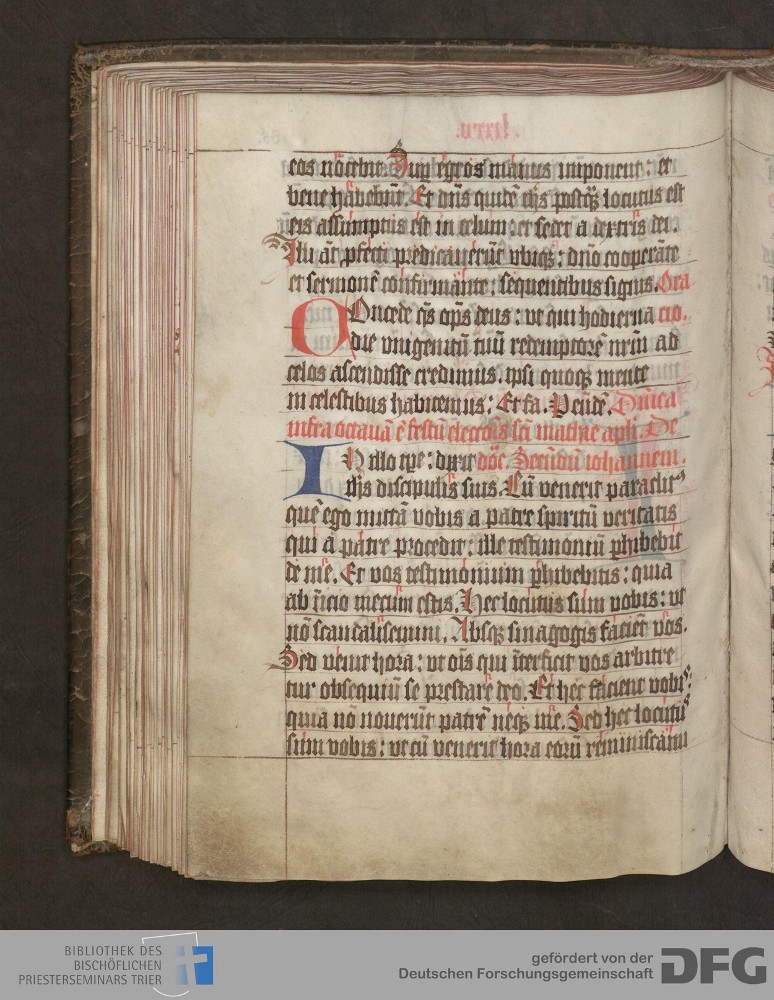 eos nōcebit. Suꝑ egros manus imponent: et
bene habebūt. Et dn̄s quidē ihs postqꝫ locutus est
eis assumptus est in celum: et sedet a dextris dei.
Illi āt ꝓfecti predicauerūt vbiqꝫ: dn̄o cooperāte
et sermonē confirmante: sequentibus signis. Ora
COncede q̄s op̄s deus: vt qui hodierna cio.
die vnigenitū tuū redemptorē nr̄m ad
celos ascendisse credimus. ipsi quoqꝫ mente
in celestibus habitemus: Et fa. Dn̄ica
infra octauā ē festū sc̄i mathie apl̄i. De
IN illo tꝑe: dixit Secūdū iohannem.
ihs discipulis suis. Cū venerit paraclitꝰ
quē ego mittā vobis a patre spiritū veritatis
qui a patre procedit: ille testimoniū ꝑhibebit
de me. Et vos testimonium ꝑhibebitis: quia
ab īicio mecum estis. Hec locutus sum vobis: vt
nō scandalisemini. Absqꝫ sinagogis faciēt vos.
Sed venit hora: vt oīs qui īterficit vos arbitre
tur obsequiū se prestare deo. Et hec facient vobis:
quia nō nouerūt patrē neqꝫ me. Sed hec locutꝰ
sum vobis: vt cū venerit hora eorū reminiscamī
BIBLIOTHEK DES
BISCHÖFLICHEN
PRIESTERSEMINARS TRIER
gefördert von der
Deutschen Forschungsgemeinschaft
DFG